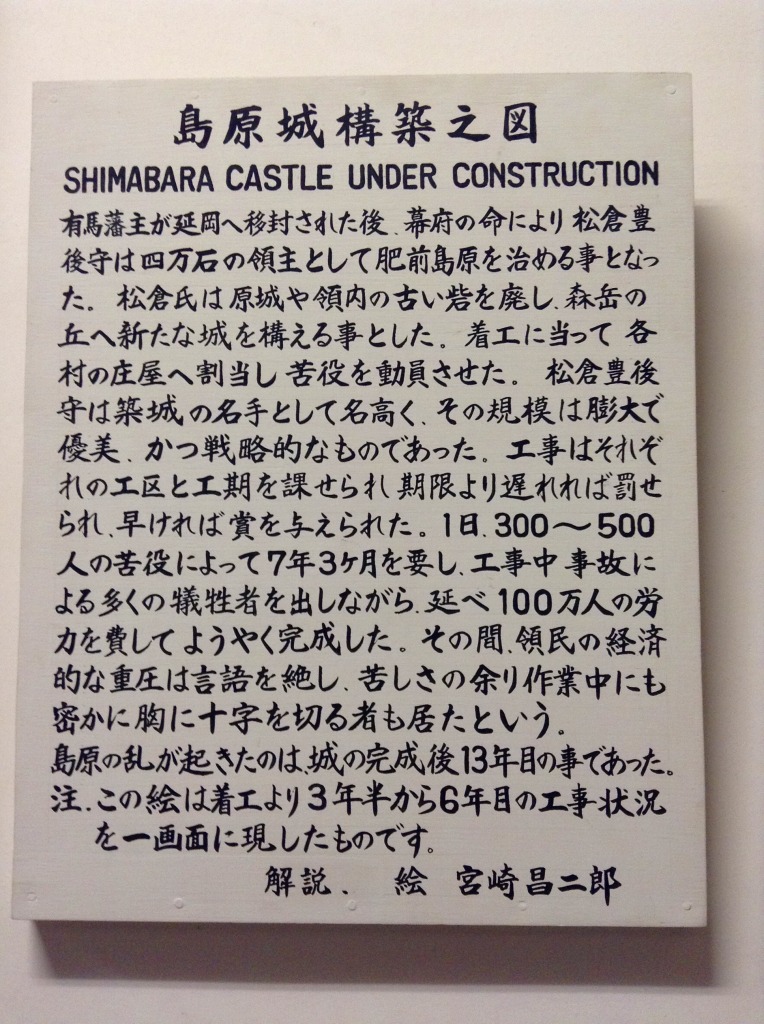 島原城構築之図
SHIMABARA CASTLE UNDER CONSTRUCTION
有馬藩主が延岡へ移封された後、幕府の命により松倉豊
後守は四万石の領主として肥前島原を治める事となっ
た。松倉氏は原城や領内の古い砦を廃し、森岳の
丘へ新たな城を構える事とした。着工に当って各
村の庄屋へ割当し苦役を動員させた。松倉豊後
守は築城の名手として名高く、その規模は膨大で
優美、かつ戦略的なものであった。工事はそれぞ
れの工区と工期を課せられ期限より遅れれば罰せ
られ、早ければ賞を与えられた。1日、300〜500
人の苦役によって7年3ヶ月を要し、工事中事故に
よる多くの犠牲者を出しながら、延べ100万人の労
力を費してようやく完成した。その間、領民の経済
的な重圧は言語を絶し、苦しさの余り作業中にも
密かに胸に十字を切る者も居たという。
島原の乱が起きたのは、城の完成後13年目の事であった。
注.この絵は着工より3年半から6年目の工事状況
を一画面に現したものです。
解説、絵 宮崎昌二郎